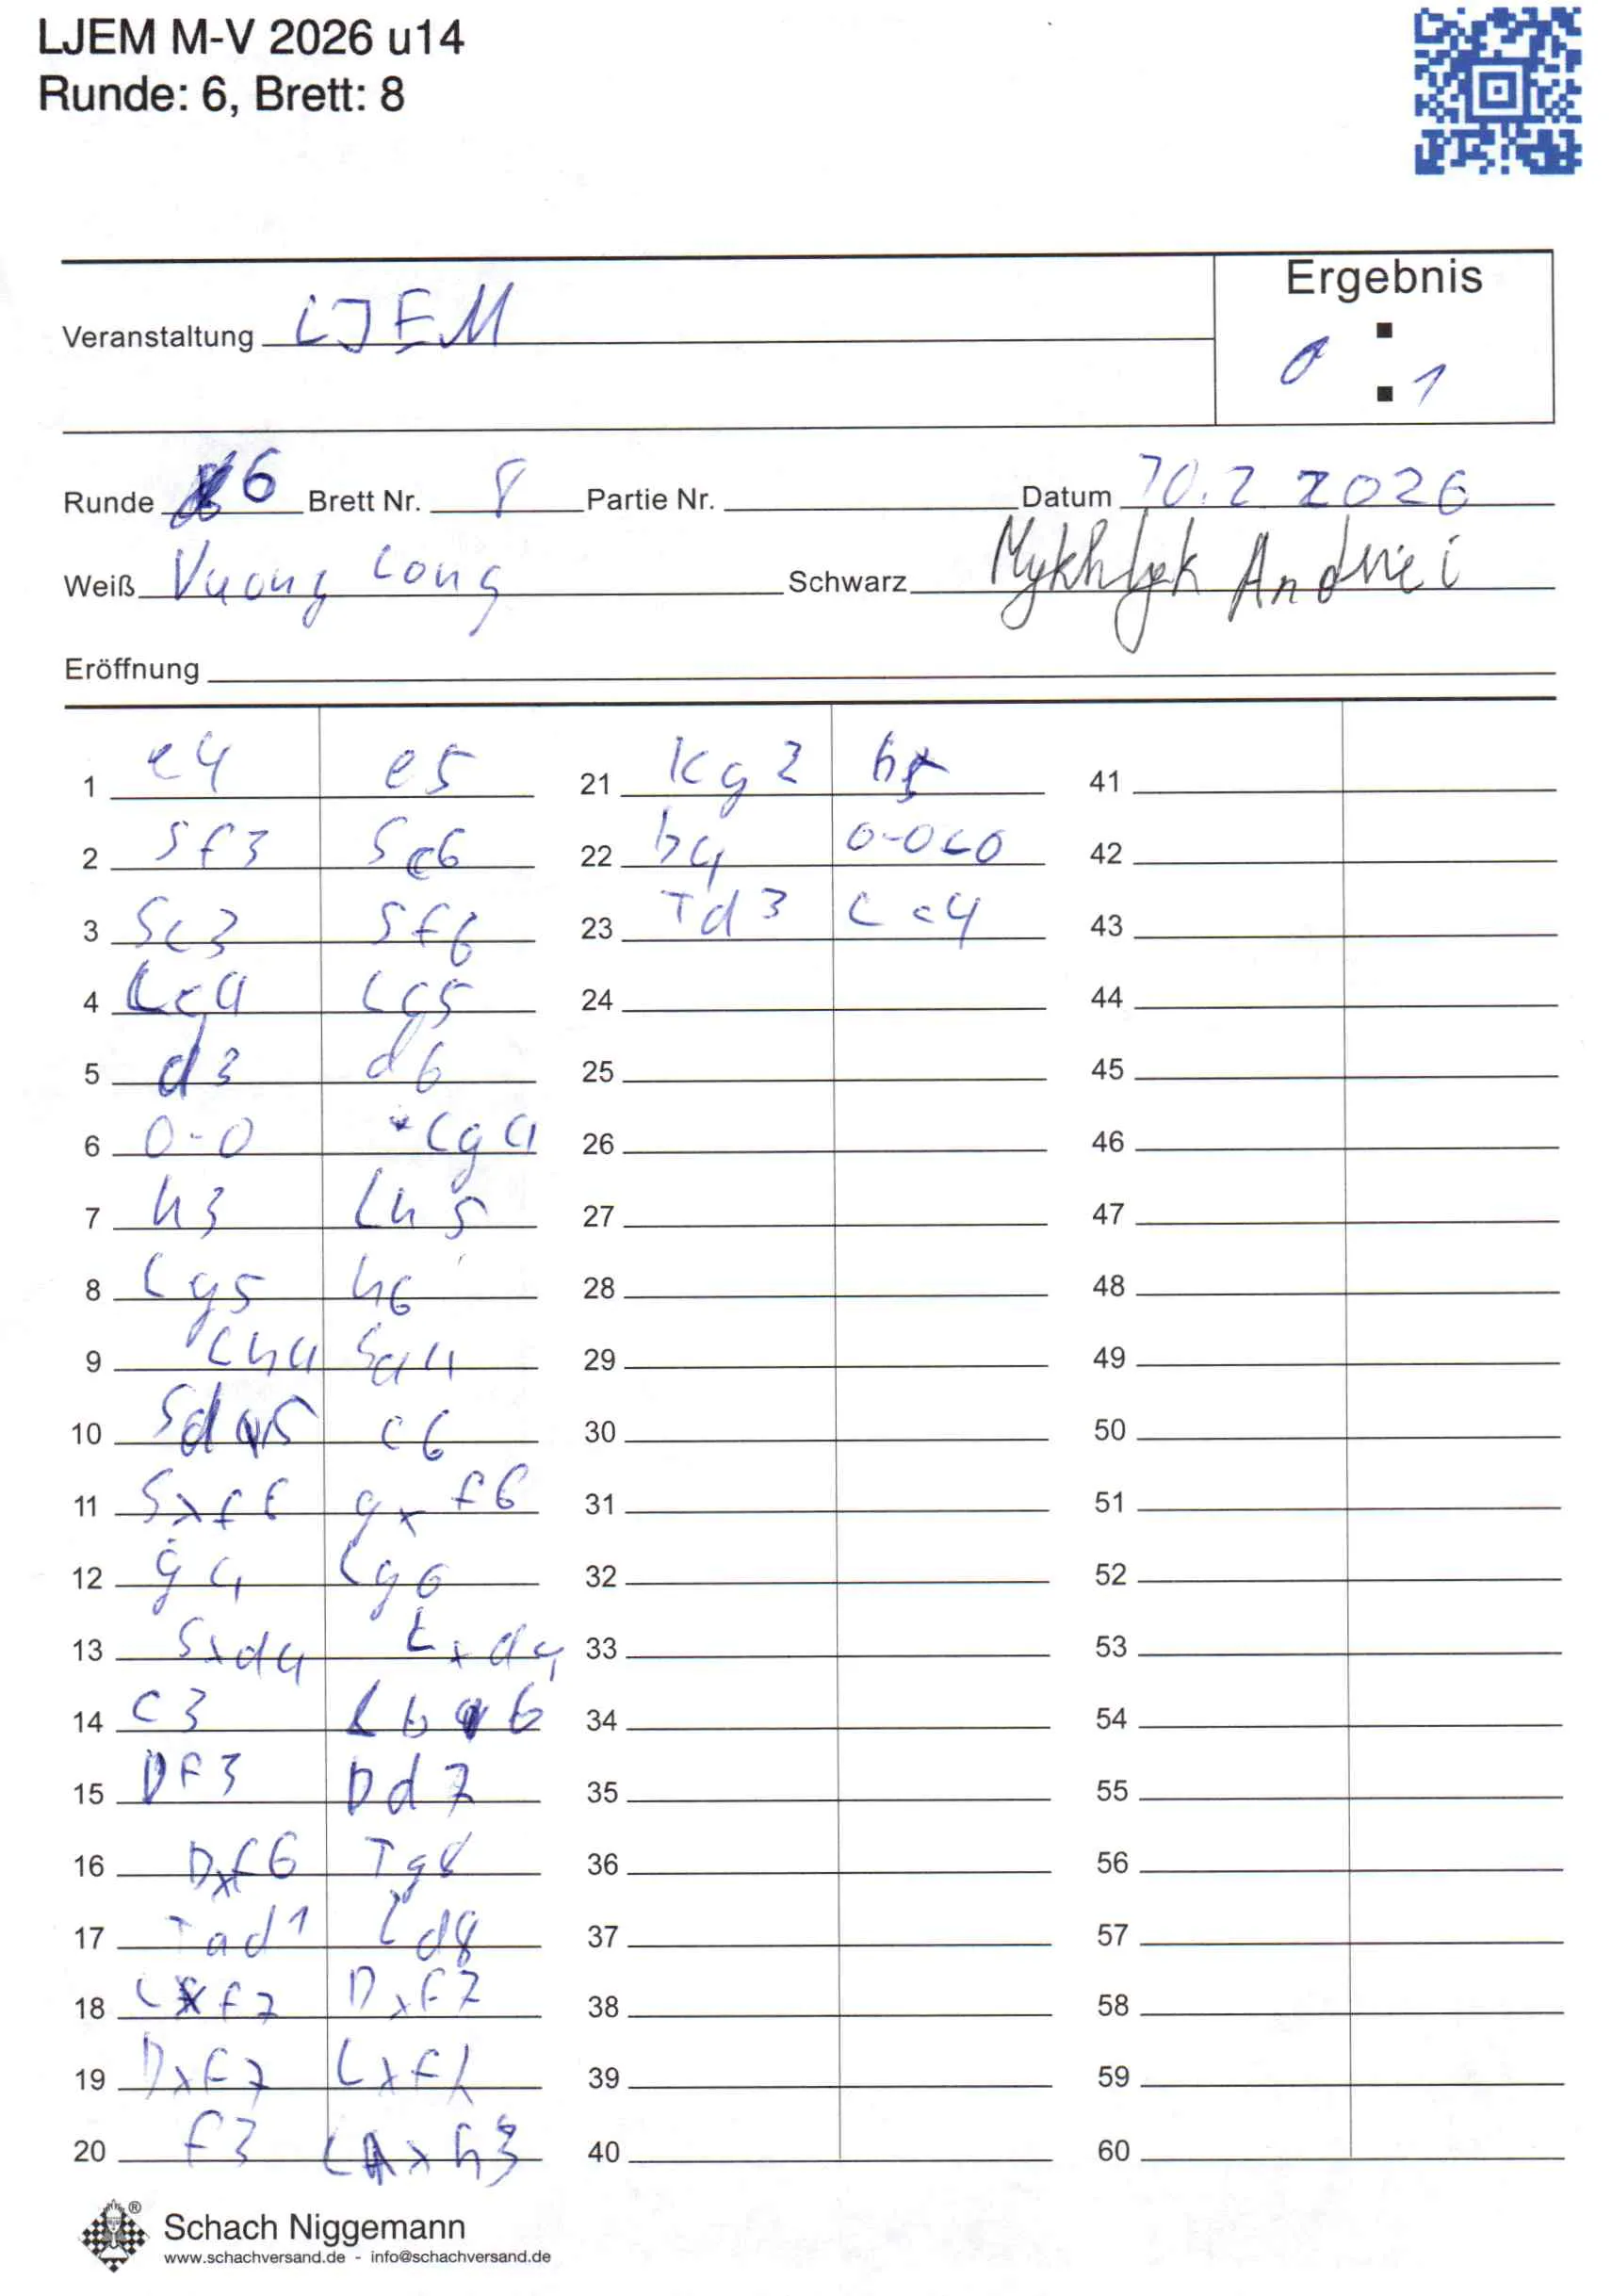 LJEM M-V 2026 u14
Runde: 6, Brett: 8
Ergebnis
Veranstaltung LJEM
0 : 1
Runde 6 Brett Nr. 8 Partie Nr. Datum 10.2 2026
Weiß Vuong Long Schwarz Mykhlyk Andriei
Eröffnung
1 e4 e5
2 Sf3 Sc6
3 Sc3 Sf6
4 Lc4 Lc5
5 d3 d6
6 0-0 Lg4
7 h3 Lh5
8 Lg5 h6
9 Lh4 Sd4
10 Sd5 c6
11 Sxf6 gxf6
12 g4 Lg6
13 Sxd4 Lxd4
14 c3 Lb6
15 DF3 Dd7
16 Dxf6 Tg8
17 Tad1 Ld8
18 Lxf7 DxF7
19 DxF7 LxF7
20 f3 Lxh3
21 Kg2 h5
22 b4 0-0-0
23 Td3 Lc4
24
25
26
27
28
29
30
31
32
33
34
35
36
37
38
39
40
41
42
43
44
45
46
47
48
49
50
51
52
53
54
55
56
57
58
59
60
®
Schach Niggemann
www.schachversand.de - info@schachversand.de